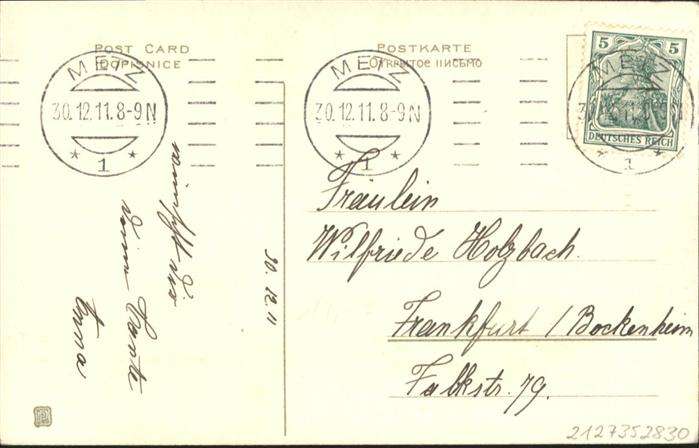 POST CARD
DOPISNICE
POSTKARTE
Открытое письмо
METZ
30.12.11.8-9N
* 1 *
METZ
30.12.11.8-9N
* 1 *
METZ
1
5 5
DEUTSCHES REICH
wünscht dir
deine Tante
Erna
30.12.11
Fräulein
Wilfriede Holzbach.
Frankfurt / Bockenheim
Falkstr. 79.
2127352830